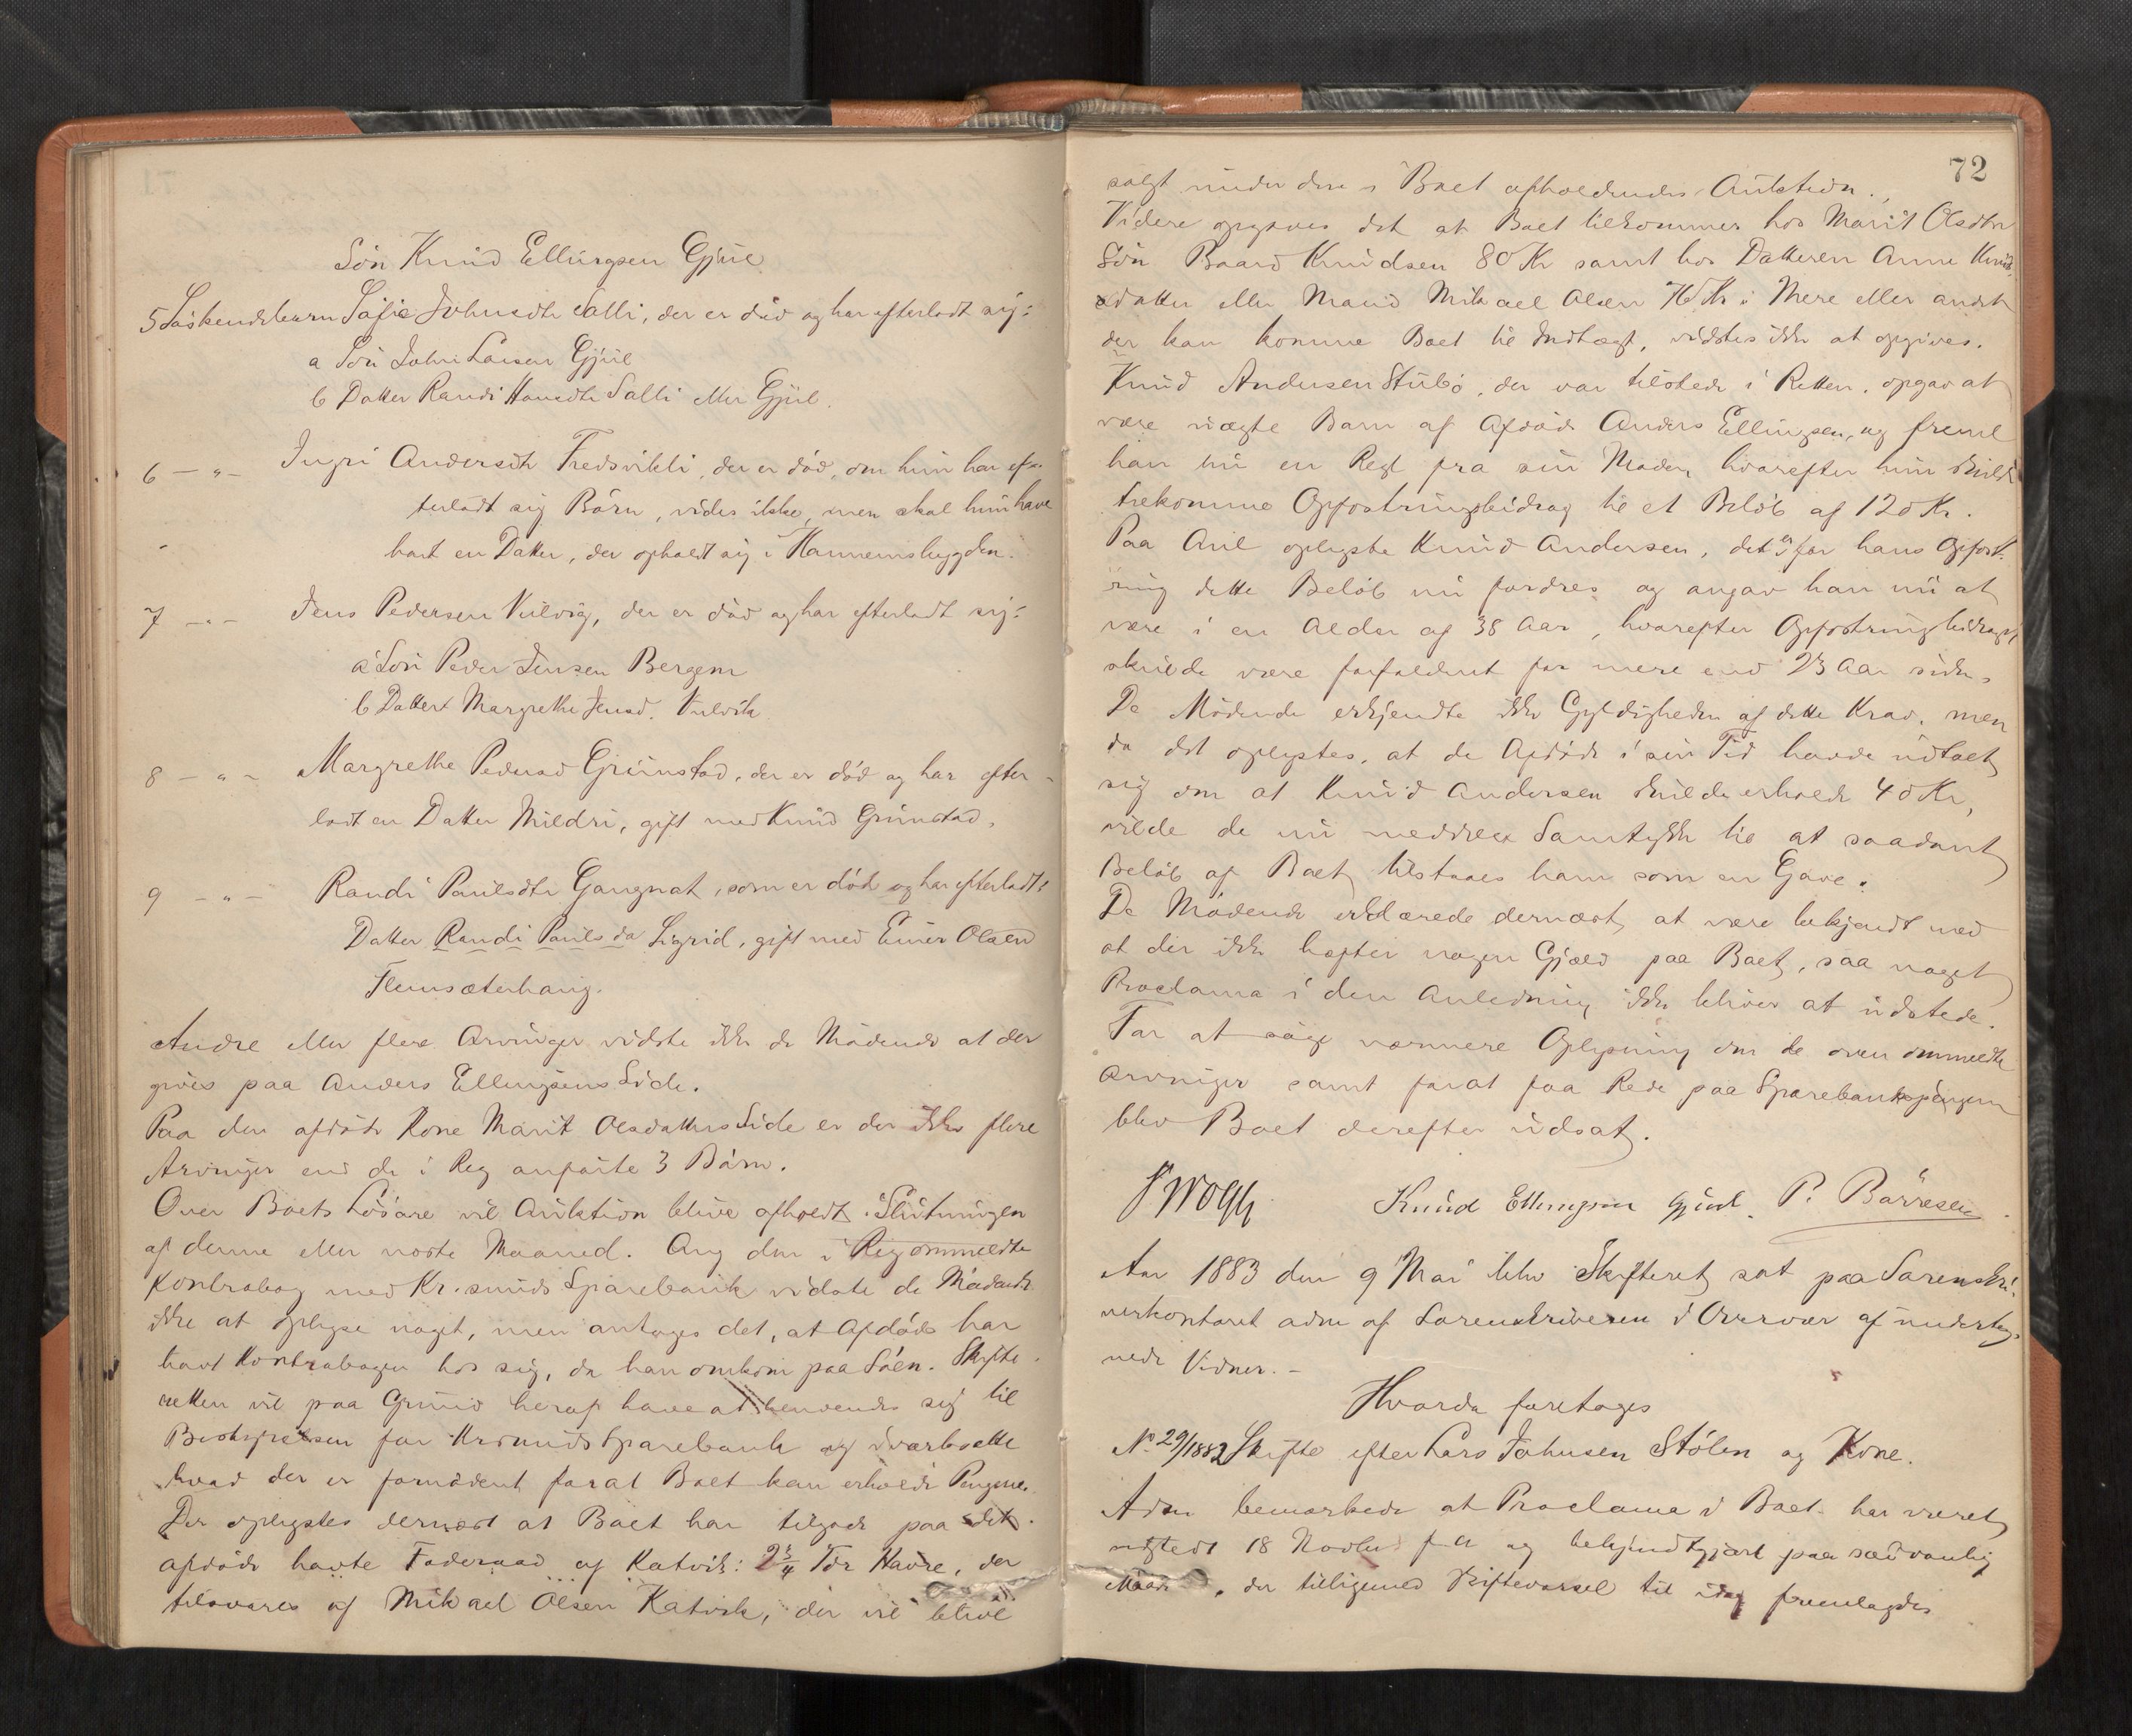 Søn Knud Ellingsen Gjül
5 Søskendebarn Sofie Johnsdtr Salli, der er død og har efterladt sig:
a Søn John Larsen Gjül
b Datter Randi Hansdtr Salli eller Gjül.
6 — " — Ingri Andersdtr Fredsvikli, der er død, om hun har ef-
terladt sig Børn, vides ikke, men skal hun have
havt en Datter, der opholdt sig i Hannemsbygden.
7 — " — Jens Pedersen Vulvig, der er død og har efterladt sig:
a Søn Peder Jensen Bergem
b Datter Margrethe Jensd. Vulvik
8 — " — Margrethe Pedersd Grimstad, der er død og har efter-
ladt en Datter Mildri, gift med Knud Grimstad.
9 — " — Randi Paulsdtr Gangnat, som er død og har efterladt:
Datter Randi Paulsda Sigrid, gift med Einer Olsen
Flemsæterhaug.
Andre eller flere Arvinger vidste ikke de Mødende at der
gives paa Anders Ellingsens Side.
Paa den afdøde Kone Marit Olsdatters Side er der ikke flere
Arvinger end de i Reg anførte 3 Børn.
Over Boets Løsøre vil Auktion blive afholdt i Slutningen
af denne eller næste Maaned. Ang den i Reg ommeldte
Kontrabog med Kr.sunds Sparebank vidste de Mødende
ikke at oplyse noget, men antages det, at Afdøde har
havt Kontrabogen hos sig, da han omkom paa Søen. Skifte-
retten vil paa Grund heraf have at henvende sig til
Bestyrelsen for Krsunds Sparebank og iværksætte
hvad der er fornødent forat Boet kan erholde Pengene.
Der oplystes dernæst at Boet har tilgode paa det
afdøde havte Føderaad af Katvik: 2 3/4 Tdr Havre, der
tilsvares af Mikael Olsen Katvik, der vil blive
72
solgt under den i Boet afholdendes Auktion.
Videre opgaves det at Boet tilkommer hos Marit Olsdtr
Søn Baard Knudsen 80 Kr samt hos Datteren Anne Knud-
sdatter eller Mand Mikael Olsen 76 Kr: Mere eller andet
der kan komme Boet til Indtægt, vidstes ikke at opgives.
Knud Andersen Stubø, der var tilstede i Retten, opgav at
være uægte Barn af Afdøde Anders Ellingsen, og freml
han nu en Regl fra sin Moder, hvorefter hun skulde
tilkomme Opfostringsbidrag til et Beløb af 120 Kr.
Paa Anl oplyste Knud Andersen, det er for hans Opfost-
ring dette Beløb nu fordres og angav han nu at
være i en Alder af 38 Aar, hvorefter Opfostringsbidraget
skulde være forfaldent for mere end 23 Aar siden.
De Mødende erkjendte ikke Gyldigheden af dette Krav, men
da det oplystes, at de Afdøde i sin Tid havde udtalt
sig om at Knud Andersen skulde erholde 40 Kr,
vilde de nu meddele Samtykke til at saadant
Beløb af Boet tilstaaes ham som en Gave.
De Mødende erklærede dernæst at være bekjendt med
at der ikke hæfter nogen Gjæld paa Boet, saa noget
Proclama i den Anledning ikke bliver at udstede.
For at søge nærmere Oplysning om de oven ommeldte
Arvinger samt forat faa Rede paa Sparebankpengene
blev Boet derefter udsat.
Knud Ellingsen Gjül. P. Børresen
Aar 1883 den 9 Mai blev Skifteret sat paa Sorenskri-
verkontoret adm af Sorenskriveren i Overvær af underteg-
nede Vidner. —
Hvorda foretoges
No 29/1882 Skifte efter Lars Johnsen Stølen og Kone.
Adm bemærkede at Proclama i Boet har været
udstedt 18 Novbr f A og bekjendtgjort paa sædvanlig
Maade, der tilligemed Skiftevarsel til idag fremlagdes